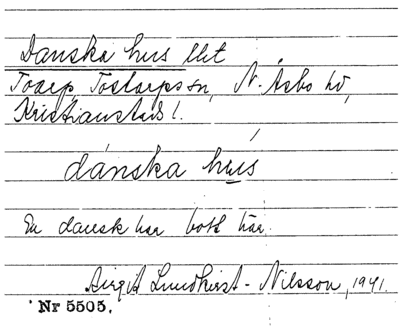 Danska hus llet
Toarp, Tostarps sn, N. Åsbo hd,
Kristianstads l.
dánska hus
En dansk har bott här.
Birgit Lundkvist-Nilsson, 1941.
Nr 5505.